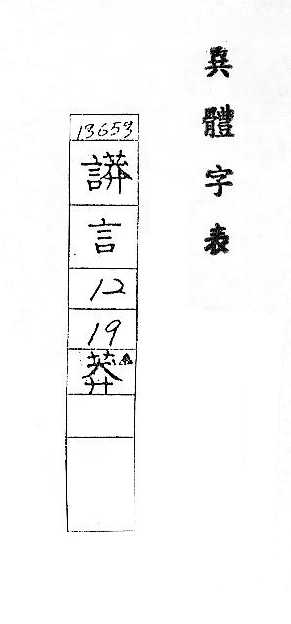 異體字表
13653
言
12
19
莽